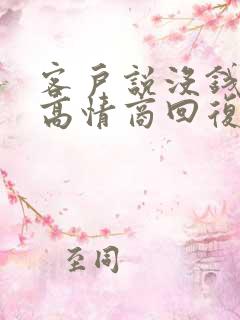 客戶說沒錢
高情商回復
至同